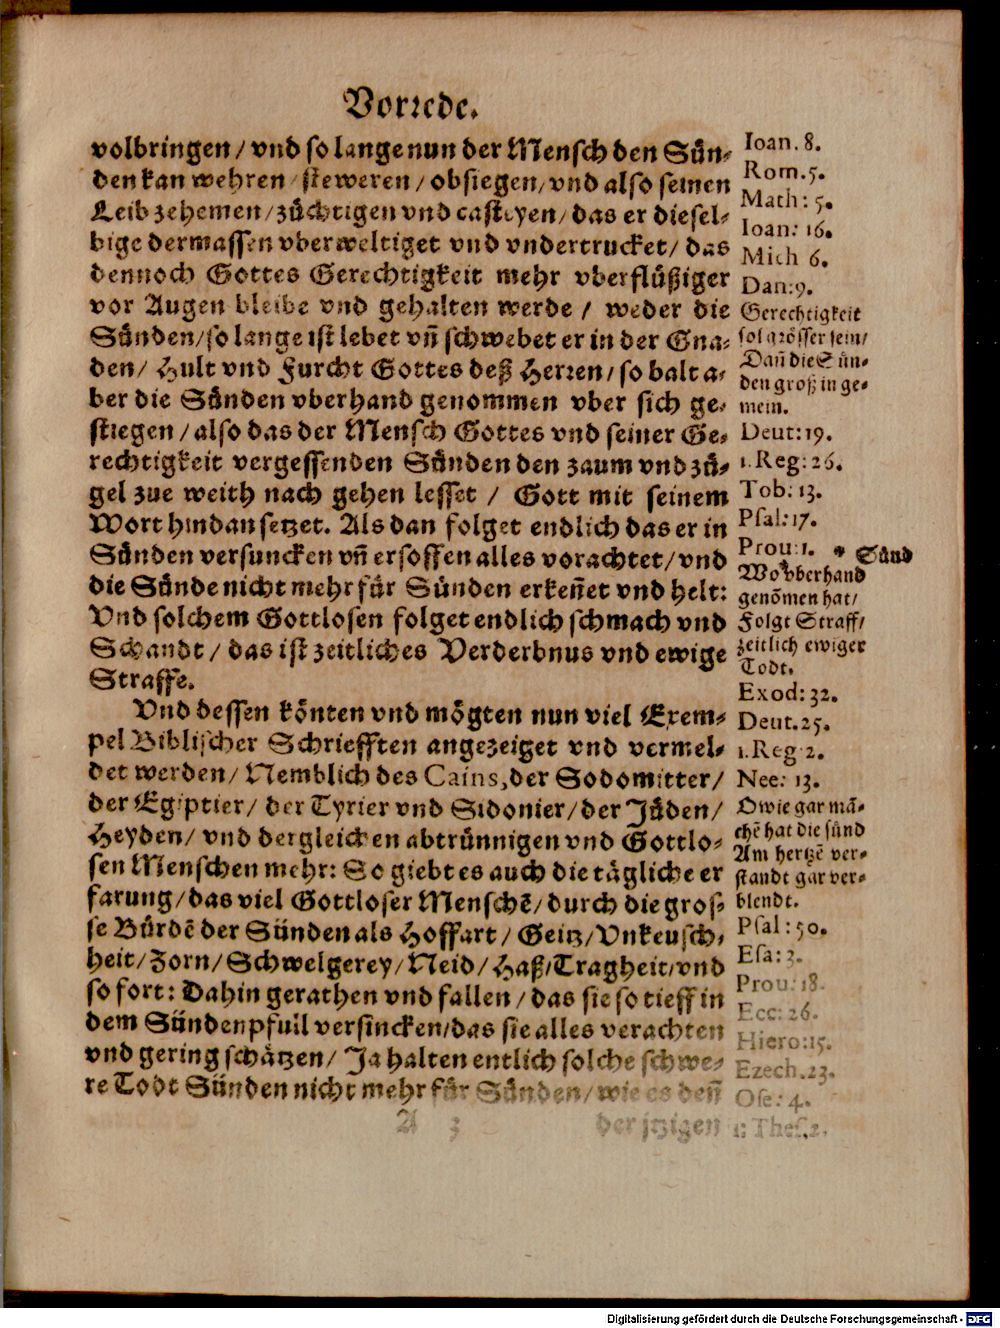 Vorrede.
volbringen / vnd so lange nun der Mensch den Sün-
den kan wehren / steweren / obsiegen / vnd also seinen
Leib zehemen / züchtigen vnd casteyen / das er diesel-
bige dermassen vberweltiget vnd vndertrucket / das
dennoch Gottes Gerechtigkeit mehr vberflüßiger
vor Augen bleibe vnd gehalten werde / weder die
Sünden / so lange ist lebet vn̄ schwebet er in der Gna-
den / Hult vnd Furcht Gottes deß Herren / so balt a-
ber die Sünden vberhand genommen vber sich ge-
stiegen / also das der Mensch Gottes vnd seiner Ge-
rechtigkeit vergessenden Sünden den zaum vnd zü-
gel zue weith nach gehen lesset / Gott mit seinem
Wort hindan setzet. Als dan folget endlich das er in
Sünden versuncken vn̄ ersoffen alles vorachtet / vnd
die Sünde nicht mehr für Sünden erken̄et vnd helt:
Vnd solchem Gottlosen folget endlich schmach vnd
Schandt / das ist zeitliches Verderbnus vnd ewige
Straffe.
Vnd dessen könten vnd mögten nun viel Exem-
pel Biblischer Schriefften angezeiget vnd vermel-
det werden / Nemblich des Cains, der Sodomitter /
der Egiptier / der Tyrier vnd Sidonier / der Jüden /
Heyden / vnd dergleichen abtrünnigen vnd Gottlo-
sen Menschen mehr: So giebt es auch die tägliche er
farung / das viel Gottloser Menschē / durch die gros-
se Bürdē der Sünden als Hoffart / Geitz / Vnkeusch-
heit / Zorn / Schwelgerey / Neid / Haß / Tragheit / vnd
so fort: Dahin gerathen vnd fallen / das sie so tieff in
dem Sündenpfuil versincken / das sie alles verachten
vnd gering schätzen / Ja halten entlich solche schwe-
re Todt Sünden nicht mehr für Sünden / wie es den̄
A 3 der jtzigen
Ioan. 8.
Rom. 5.
Math: 5.
Ioan: 16.
Mich 6.
Dan: 9.
Gerechtigkeit
sol grösser sein /
Dan̄ die Sün-
den groß in ge-
mein.
Deut: 19.
1. Reg: 26.
Tob: 13.
Psal: 17.
Prou: 1. * Sünd
Wo * vberhand
genōmen hat /
Folgt Straff /
zeitlich ewiger
Todt.
Exod: 32.
Deut. 25.
1. Reg 2.
Nee: 13.
O wie gar mā-
chē hat die sünd
Am hertzē ver-
standt gar ver-
blendt.
Psal: 50.
Esa: 3.
Prou: 18.
Ecc: 26.
Hiero: 15.
Ezech. 23.
Ose: 4.
1: Thes. 2.
Digitalisierung gefördert durch die Deutsche Forschungsgemeinschaft - DFG